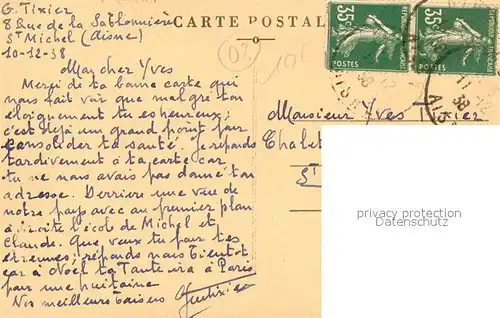 G. Tixier
8 Rue de la Sablonnière
St Michel (Aisne)
10-12-38
CARTE POSTALE
02
10€
Mon cher Yves
Merci de ta bonne carte qui
nous fait voir que malgré ton
éloignement tu es heureux ;
c'est déjà un grand point pour
consolider ta santé. Je réponds
tardivement à ta carte car
tu ne nous avais pas donné ton
adresse. Derrière une vue de
notre pays avec au premier plan
à droite l'école de Michel et
Claude. Que veux tu pour tes
étrennes ; réponds nous bientôt
car à Noël ta Tante ira à Paris
pour une huitaine
Nos meilleurs baisers
35c
POSTES
35c
POSTES
38
11
38
AISNE
Monsieur Yves Tixier
Chalet
St
privacy protection
Datenschutz